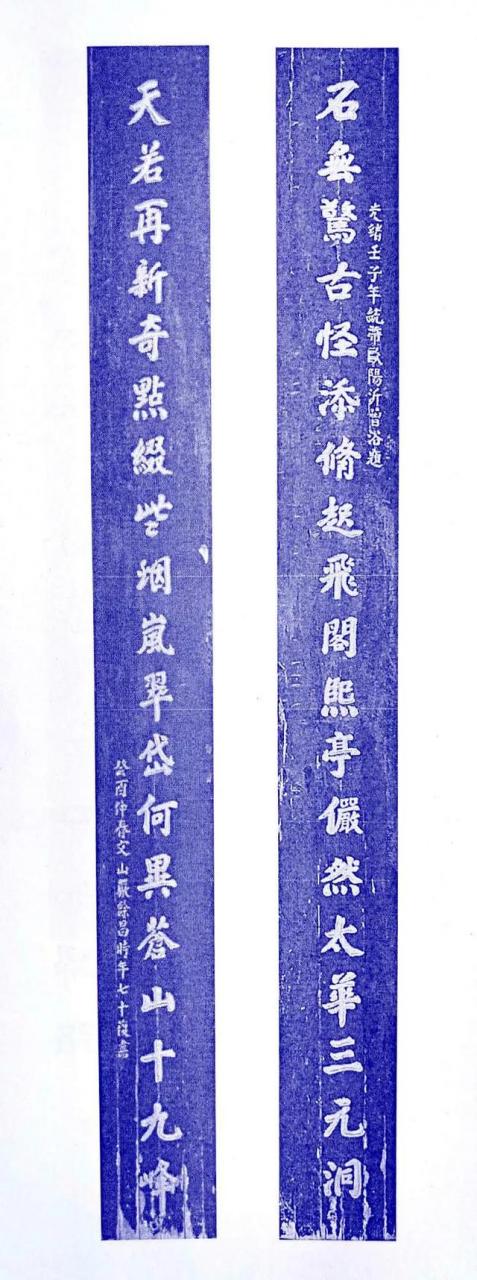 石無驚古怪添脩起飛閣熙亭儼然太華三元洞
光緒壬子年統帶歐陽沂曾浴題
天若再新奇點綴些烟嵐翠岱何異蒼山十九峰
癸酉仲春文山嚴餘昌時年七十復書